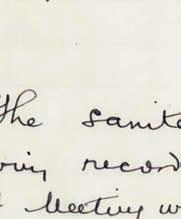 The sanita
ing record
Meeting w